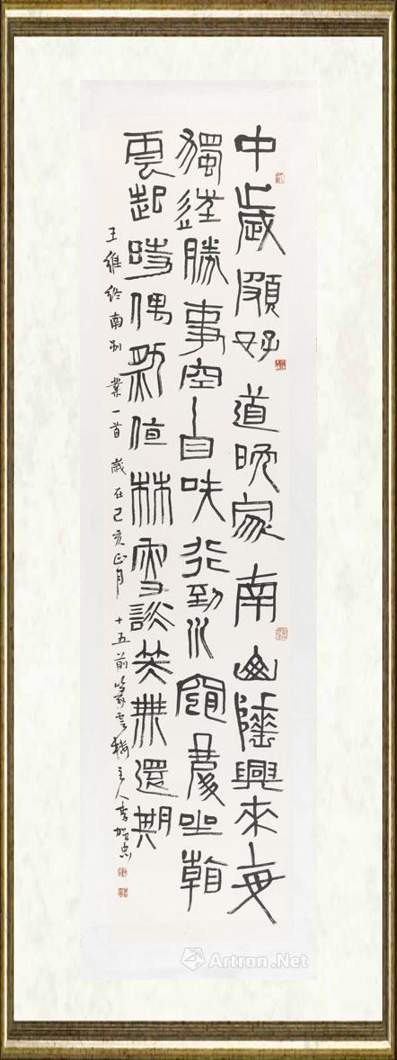 中歲頗好道晚家南山陲興來每
獨往勝事空自知行到水窮處坐看
雲起時偶然值林叟談笑無還期
王維終南別業一首 歲在己亥正月十五前 雲 主人李 忠
Artron.Net